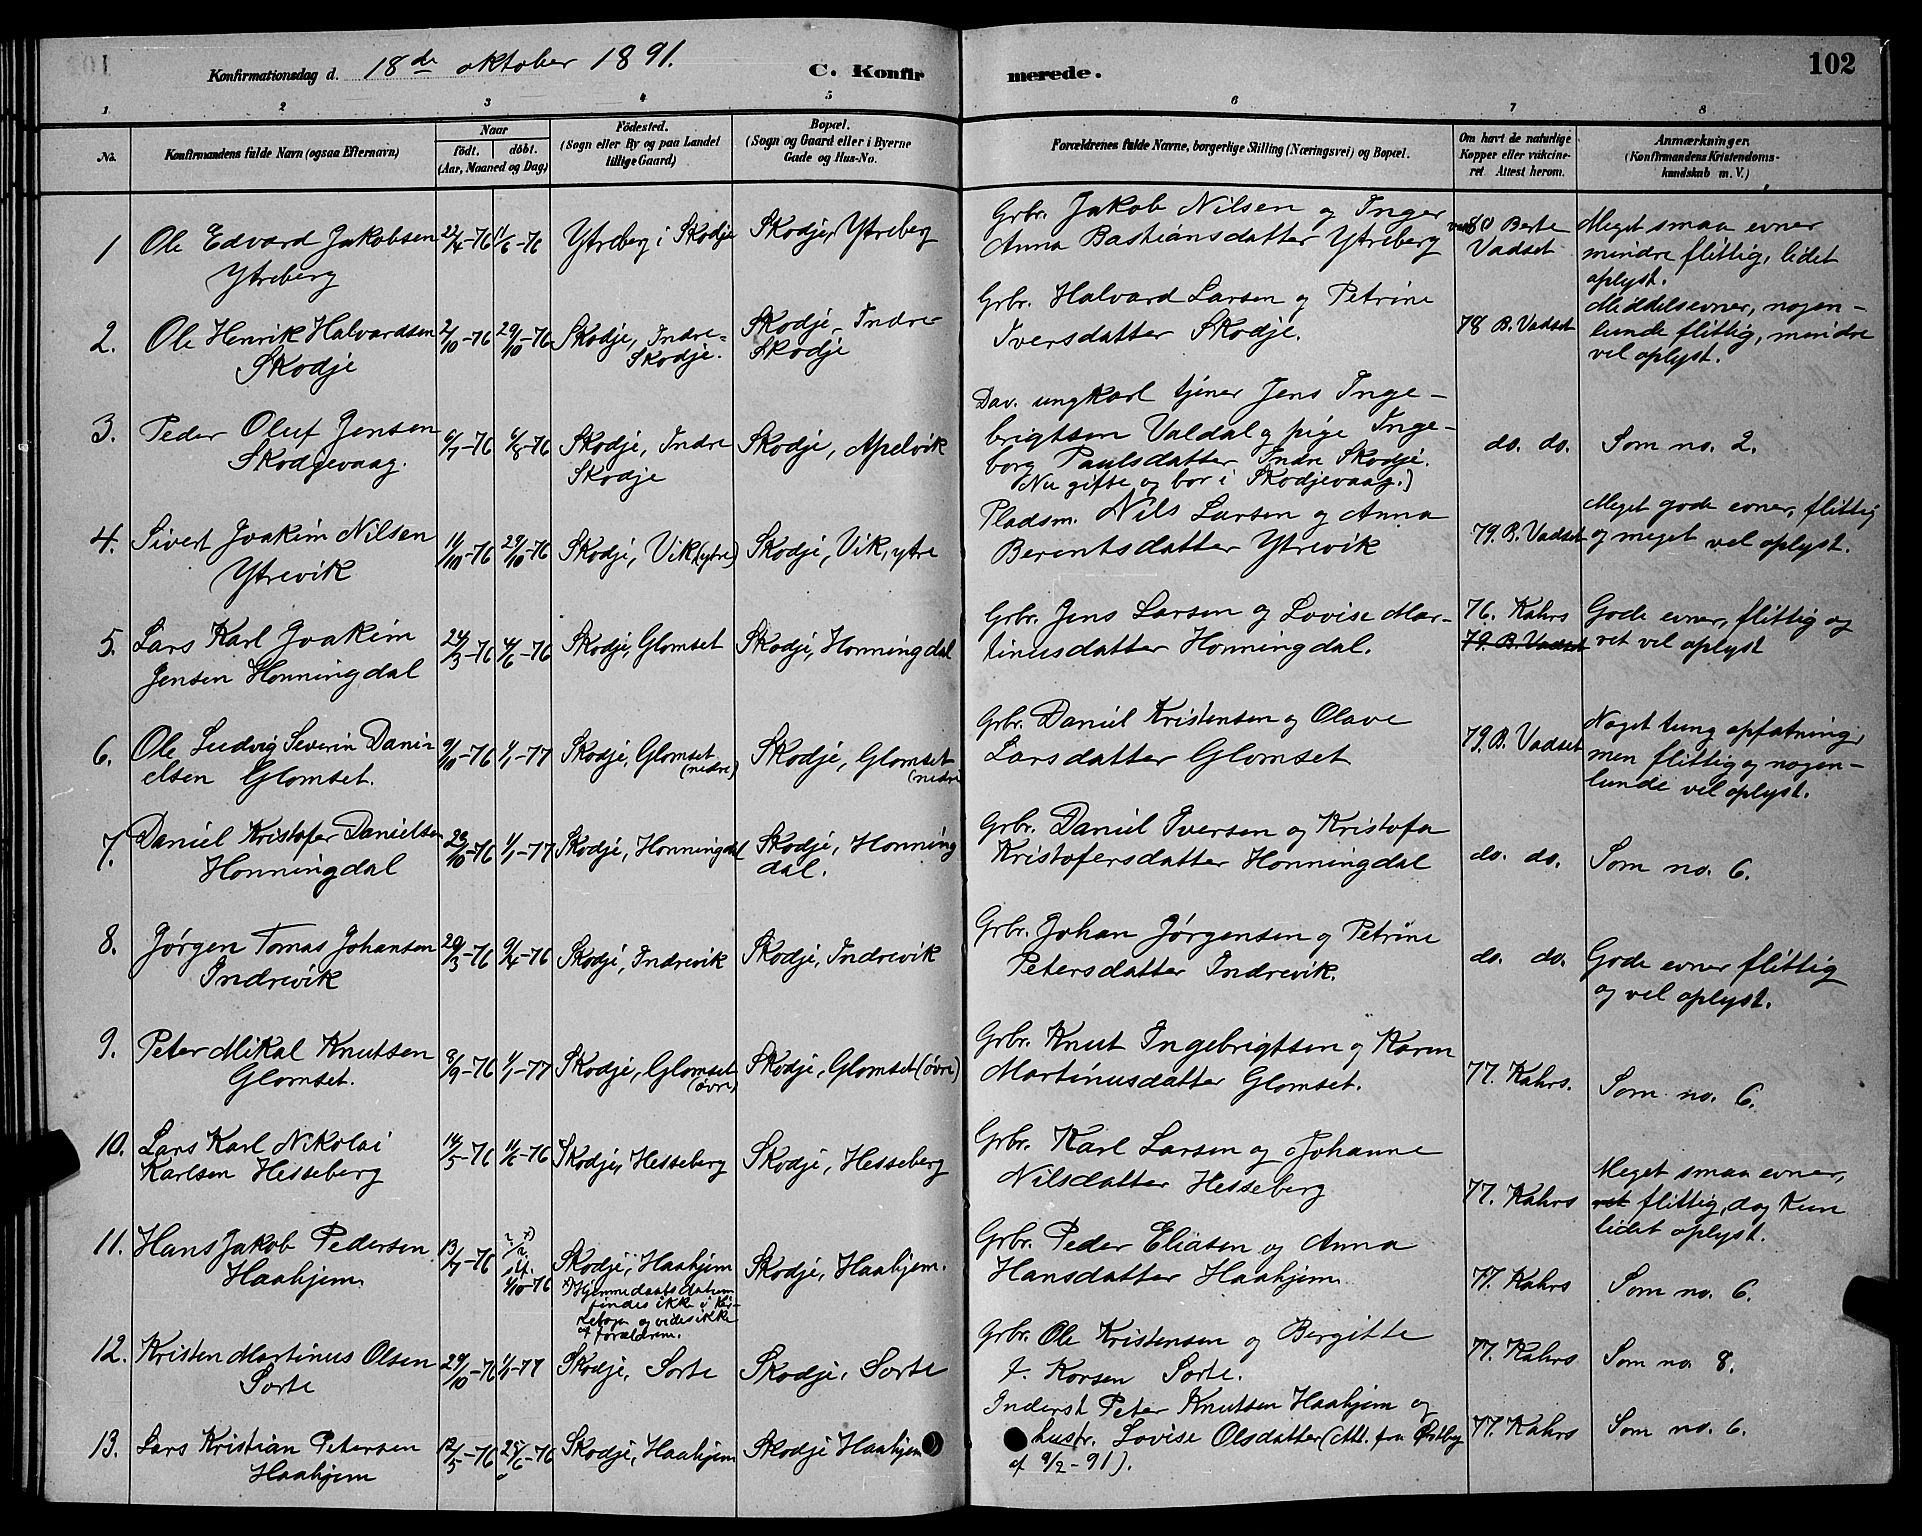 Konfirmationsdag d. 18de oktober 1891. C. Konfirmerede. 102
1 2 3 4 5 6 7 8
No. Konfirmandens fulde Navn (ogsaa Efternavn) Naar födt. döbt. (Aar, Maaned og Dag) Födested. (Sogn eller By og paa Landet tillige Gaard) Bopæl. (Sogn og Gaard eller i Byerne Gade og Hus-No. Forældrenes fulde Navne, borgerlige Stilling (Næringsvei) og Bopæl. Om havt de naturlige Kopper eller vakcineret. Attest herom. Anmærkninger. (Konfirmandens Kristendomskundskab m. V.)
1 Ole Edvard Jakobsen Ytreberg 22/4-76 11/6-76 Ytreberg i Skodje Skodje, Ytreberg
Grbr. Jakob Nilsen og Inger Anna Bastiansdatter Ytreberg 80 Berte Vadset Meget smaa evner mindre flittig, lidet oplyst.
2. Ole Henrik Halvardsen Skodje 2/10-76 29/10-76 Skodje, Indre-Skodje. Skodje, Indre Skodje
Grbr. Halvard Larsen og Petrine Iversdatter Skodje. 78 B. Vadset Middelsevner, nogenlunde flittig, mindre vel oplyst.
3. Peder Oluf Jensen Skodjevaag. 6/7-76 6/8-76 Skodje, Indre Skodje Skodje, Apelvik
Dav. ungkarl tjener Jens Ingebrigtsen Valdal og pige Ingeborg Paulsdatter Indre Skodje. (Nu gifte og bor i Skodjevaag.) do. do. Som no. 2.
4. Sivert Joakim Nilsen Ytrevik 11/10-76 29/10-76 Skodje, Vik (ytre) Skodje, Vik, ytre
Pladsm. Nils Larsen og Anna Berentsdatter Ytrevik 79. B. Vadset Meget gode evner, flittig og meget vel oplyst.
5. Lars Karl Joakim Jensen Honningdal 24/3-76 4/6-76 Skodje, Glomset Skodje, Honningdal
Grbr. Jens Larsen og Lovise Martinusdatter Honningdal. 76. Kahrs 79. B. Vadset Gode evner, flittig og ret vel oplyst
6. Ole Ludvig Severin Danielsen Glomset. 9/10-76 1/1-77 Skodje, Glomset (nedre) Skodje, Glomset (nedre
Grbr. Daniel Kristensen og Olave Larsdatter Glomset 79. B. Vadset Noget tung opfatning, men flittig og nogenlunde vel oplyst.
7. Daniel Kristofer Danielsen Honningdal 23/10-76 1/1-77 Skodje, Honningdal Skodje, Honningdal.
Grbr. Daniel Iversen og Kristofa Kristofersdatter Honningdal do. do. Som no. 6.
8. Jørgen Tomas Johansen Indrevik 20/3-76 9/4-76 Skodje, Indrevik Skodje, Indrevik
Grbr. Johan Jørgensen og Petrine Petersdatter Indrevik. do. do. Gode evner flittig og vel oplyst.
9. Peter Mikal Knutsen Glomset. 8/9-76 1/1-77 Skodje, Glomset (øvre) Skodje, Glomset (øvre)
Grbr. Knut Ingebrigtsen og Karen Martinusdatter Glomset. 77. Kahrs. Som no. 6.
10. Lars Karl Nikolai Karlsen Hesseberg 14/5-76 11/6-76 Skodje, Hesseberg Skodje, Hesseberg
Grbr. Karl Larsen og Johanne Nilsdatter Hesseberg 77. Kahrs Meget smaa evner, ret flittig, dog kun lidet oplyst.
11. Hans Jakob Pedersen Haahjem 13/7-76 1/10-76 Skodje, Haahjem Hjemmedaabs datum findes ikke i og vides ikke af forældrene. Skodje, Haahjem.
Grbr. Peder Eliasen og Anna Hansdatter Haahjem 77. Kahrs Som no. 6.
12. Kristen Martinus Olsen Sorte 29/10-76 1/1-77 Skodje, Sorte Skodje, Sorte
Grbr. Ole Kristensen og Bergitte f. Korsen Sorte. 77. Kahrs Som no. 8.
13. Lars Kristian Petersen Haahjem 12/5-76 25/6-76 Skodje, Haahjem Skodje Haahjem
Inderst Peter Knutsen Haahjem og hustr. Lovise Olsdatter (Att. fra af 9/2-91). 77. Kahrs Som no. 6.